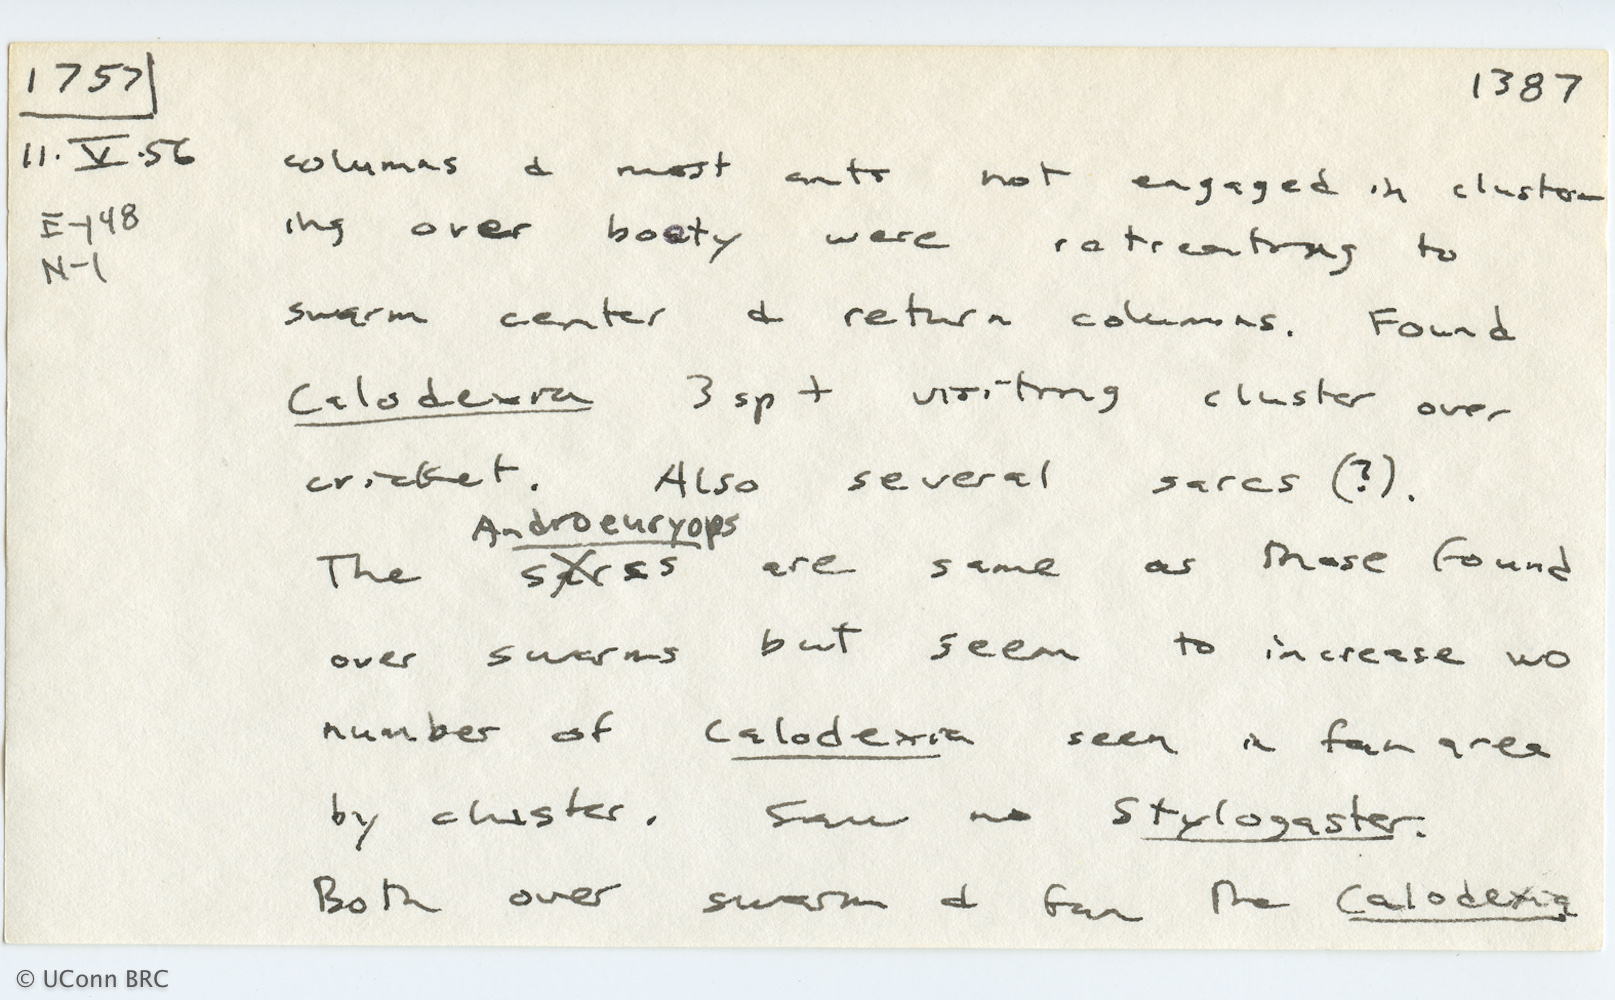 1757
1387
11.V.56
E-148
N-1
columns & most ants not engaged in cluster-
ing over booty were retreating to
swarm center & return columns. Found
Calodexia 3 sp + visiting cluster over
cricket. Also several sarcs (?).
Androeuryops
The sarcs are same as those found
over swarms but seem to increase wo
number of Calodexia seen in fan area
by cluster. Saw no Stylogaster.
Both over swarm & fan the Calodexia
© UConn BRC